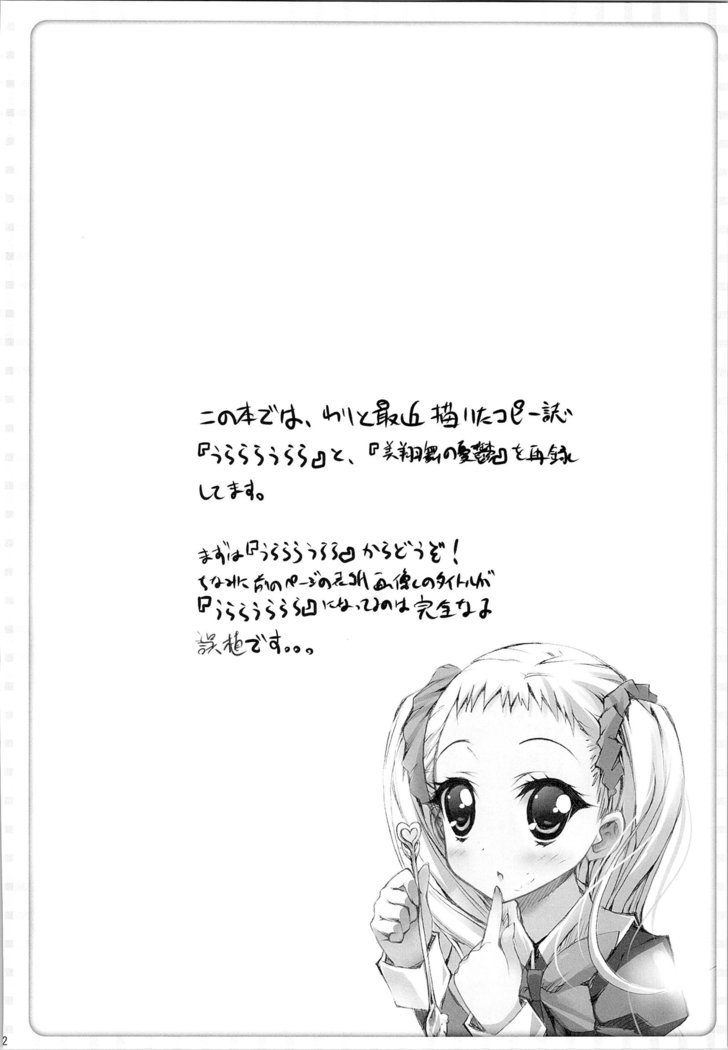 この本では、わりと最近描いたコピー誌
『うらららうらら』と、『美翔舞の憂鬱』を再録
してます。
まずは『うらららうらら』からどうぞ！
ちなみに前のページの左され画像しのタイトルが
『うらららうらら』になってるのは完全なる
誤植です。。。
2